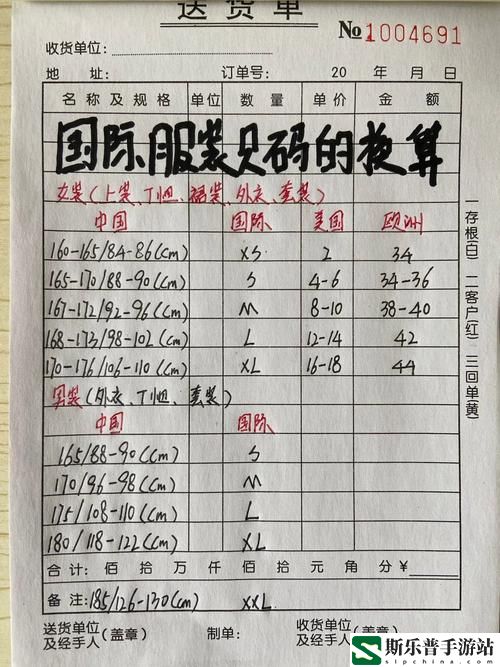 送货单
№1004691
收货单位：
地 址： 订单号： 20 年 月 日
名称及规格 单位 数量 单价 金额
国际服装尺码的换算
女装（上装、T恤、裙装、外衣、套装）
中国 国际 美国 欧洲
160-165/84-86(cm) XS 2 34
165-170/88-90(cm) S 4-6 34-36
167-172/92-96(cm) M 8-10 38-40
168-173/98-102(cm) L 12-14 42
170-176/106-110(cm) XL 16-18 44
男装（外衣、T恤、套装）
中国 国际
165/88-90(cm) S
170/96-98(cm) M
175/108-110(cm) L
180/118-122(cm) XL
合计： 佰 拾 万 仟 佰 拾 元 角 分¥
备注： 185/126-130(cm) XXL
送货单位及经手人（盖章） 制单： 收货单位及经手人（盖章）
一存根(白) 二客户(红) 三回单(黄)
斯乐普手游站
slpchina.com